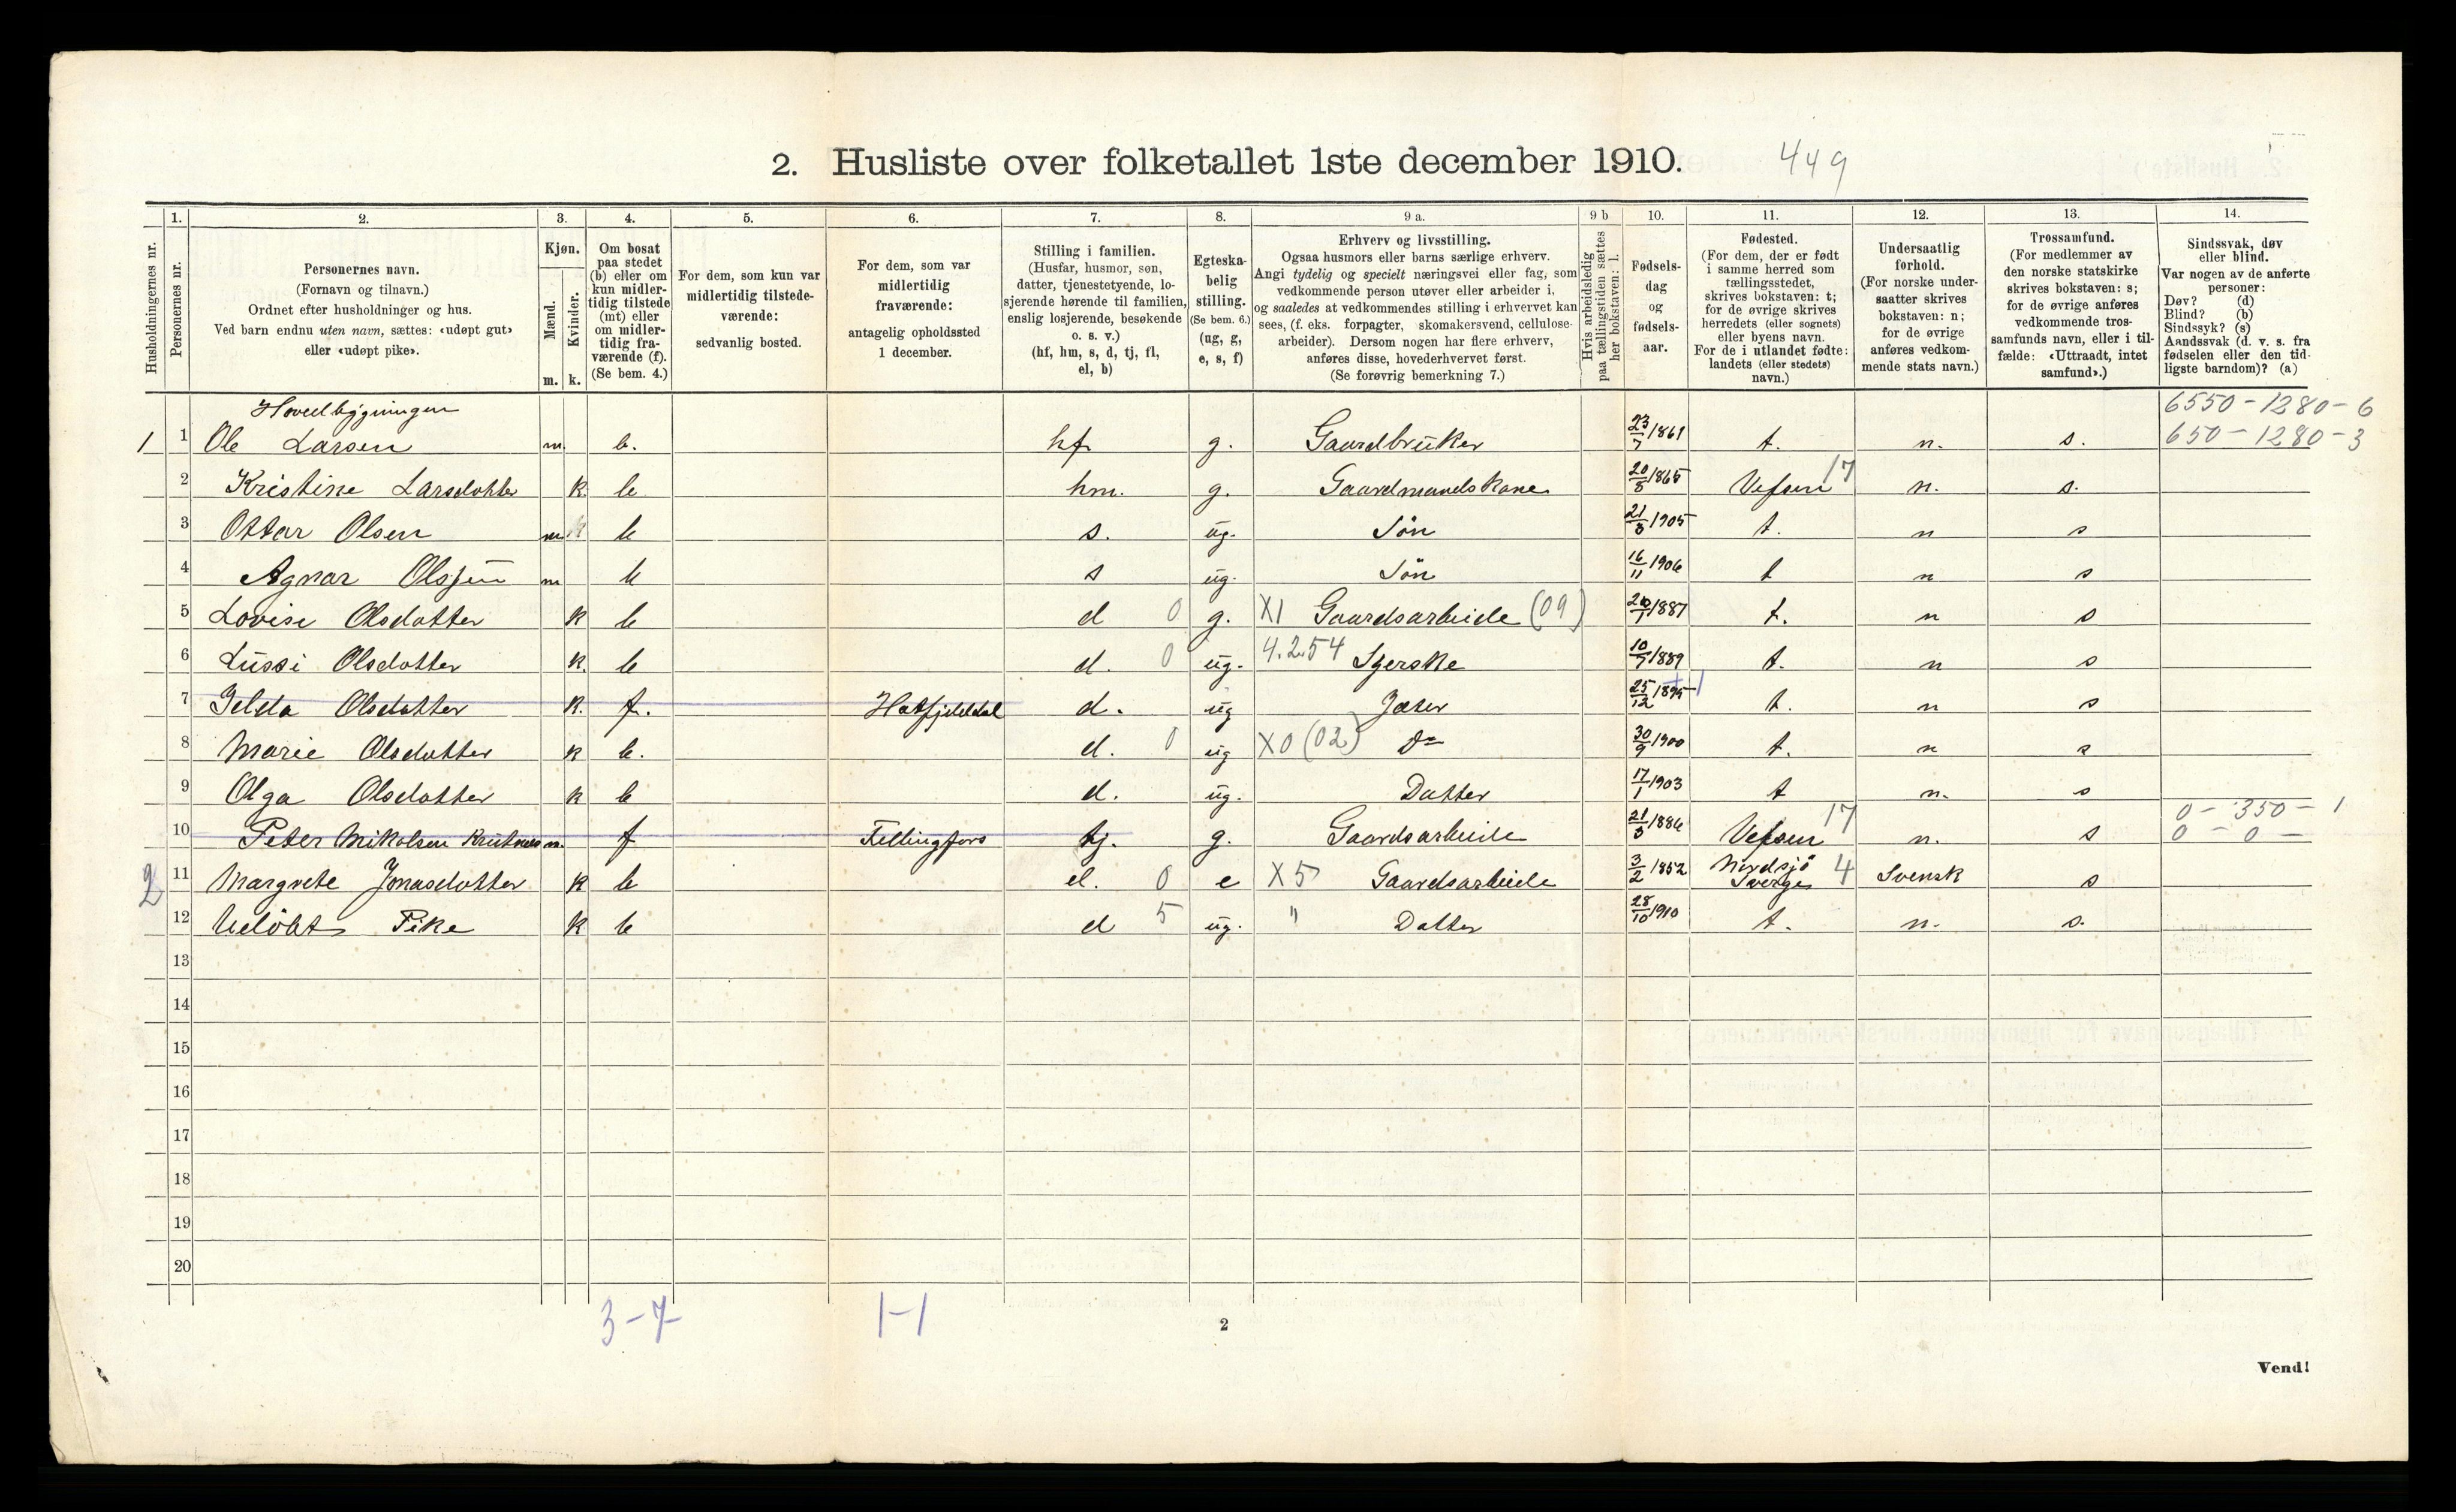 2. Husliste over folketallet 1ste december 1910. 449
Husholdningernes nr.
1. Personernes nr.
2. Personernes navn.
(Fornavn og tilnavn.)
Ordnet efter husholdninger og hus.
Ved barn endnu uten navn, sættes: «udøpt gut»
eller «udøpt pike».
3. Kjøn.
Mænd. m.
Kvinder. k.
4. Om bosat
paa stedet
(b) eller om
kun midler-
tidig tilstede
(mt) eller
om midler-
tidig fra-
værende (f).
(Se bem. 4.)
5. For dem, som kun var
midlertidig tilstede-
værende:
sedvanlig bosted.
6. For dem, som var
midlertidig
fraværende:
antagelig opholdssted
1 december.
7. Stilling i familien.
(Husfar, husmor, søn,
datter, tjenestetyende, lo-
sjerende hørende til familien,
enslig losjerende, besøkende
o. s. v.)
(hf, hm, s, d, tj, fl,
el, b)
8. Egteska-
belig
stilling.
(Se bem. 6.)
(ug, g,
e, s, f)
9 a. Erhverv og livsstilling.
Ogsaa husmors eller barns særlige erhverv.
Angi tydelig og specielt næringsvei eller fag, som
vedkommende person utøver eller arbeider i,
og saaledes at vedkommendes stilling i erhvervet kan
sees, (f. eks. forpagter, skomakersvend, cellulose-
arbeider). Dersom nogen har flere erhverv,
anføres disse, hovederhvervet først.
(Se forøvrig bemerkning 7.)
9 b Hvis arbeidsledig
paa tællingstiden sættes
her bokstaven: l.
10. Fødsels-
dag
og
fødsels-
aar.
11. Fødested.
(For dem, der er født
i samme herred som
tællingsstedet,
skrives bokstaven: t;
for de øvrige skrives
herredets (eller sognets)
eller byens navn.
For de i utlandet fødte:
landets (eller stedets)
navn.)
12. Undersaatlig
forhold.
(For norske under-
saatter skrives
bokstaven: n;
for de øvrige
anføres vedkom-
mende stats navn.)
13. Trossamfund.
(For medlemmer av
den norske statskirke
skrives bokstaven: s;
for de øvrige anføres
vedkommende tros-
samfunds navn, eller i til-
fælde: «Uttraadt, intet
samfund».)
14. Sindssvak, døv
eller blind.
Var nogen av de anførte
personer:
Døv? (d)
Blind? (b)
Sindssyk? (s)
Aandssvak (d. v. s. fra
fødselen eller den tid-
ligste barndom)? (a)
Hovedbygningen 6550-1280-6
1 1 Ole Larsen m. b. hf g. Gaardbruker 23/7 1861 t. n. s. 650-1280-3
2 Kristine Larsdotter k. b hm. g. Gaardmandskone 20/8 1865 Vefsen 17 n. s.
3 Ottar Olsen m b s. ug. Søn 21/3 1905 t. n s
4 Agnar Olssen m b s ug. Søn 16/11 1906 t n s
5 Lovise Olsdatter k b d 0 g. X1 Gaardsarbeide (09) 20/1 1887 t. n s
6 Lussi Olsdotter k. b d. 0 ug. 4.2.54 Syerske 10/7 1889 t. n s
7 Gelda Olsdatter k. f. Hatfjelddal d. ug Jæter 25/12 1895 t. n s
8 Marie Olsdatter k b. d. 0 ug X0 (02) Do 30/9 1900 t. n s
9 Olga Olsdatter k b d. ug. Datter 17/1 1903 t n. s 0-350-1
10 Peter Mikalsen m. f Fellingfors tj. g. Gaardsarbeide 21/3 1886 Vefsen 17 n. s 0-0-
2 11 Margrete Jonasdotter k b el. 0 e X5 Gaardsarbeide 3/2 1852 Sverge 4 Svensk s
12 Udöbt Pike k b d 5 ug. " Datter 28/10 1910 t. n. s.
13
14
15
16
17
18
19
20
3-7 1-1
2
Vend!